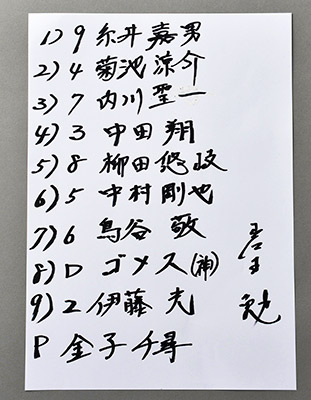 1) 9 糸井嘉男
2) 4 菊池涼介
3) 7 内川聖一
4) 3 中田翔
5) 8 柳田悠岐
6) 5 中村剛也
7) 6 鳥谷敬
8) D ゴメス(神)
9) 2 伊藤光
P 金子千尋